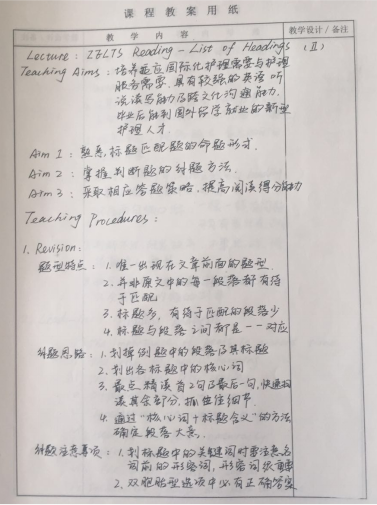 课程教案用纸
教 学 内 容 教学设计/备注
Lecture: IELTS Reading - List of Headings (II)
Teaching Aims: 培养适应国际化护理需要与护理
服务需要,具有较强的英语听
说读写能力及跨文化沟通能力,
毕业后能到国外留学就业的新型
护理人才.
Aim 1: 熟悉标题匹配题的命题形式.
Aim 2: 掌握判断题的解题方法.
Aim 3: 采取相应答题策略,提高阅读得分能力
Teaching Procedures:
1. Revision:
题型特点: 1. 唯一出现在文章前面的题型.
2. 并非原文中的每一段落都有待
于匹配
3. 标题多,有待于匹配的段落少
4. 标题与段落之间都是一一对应
解题思路: 1. 划掉例题中的段落及其标题
2. 划出各标题中的核心词
3. 精读首2句及最后一句,快速
读其余部分,抓住细节.
4. 通过“核心词+标题含义”的方法
确定段落大意.
解题注意事项: 1. 划标题中的关键词时要注意名
词前的形容词,形容词很重要
2. 双胞胎型选项中必有正确答案